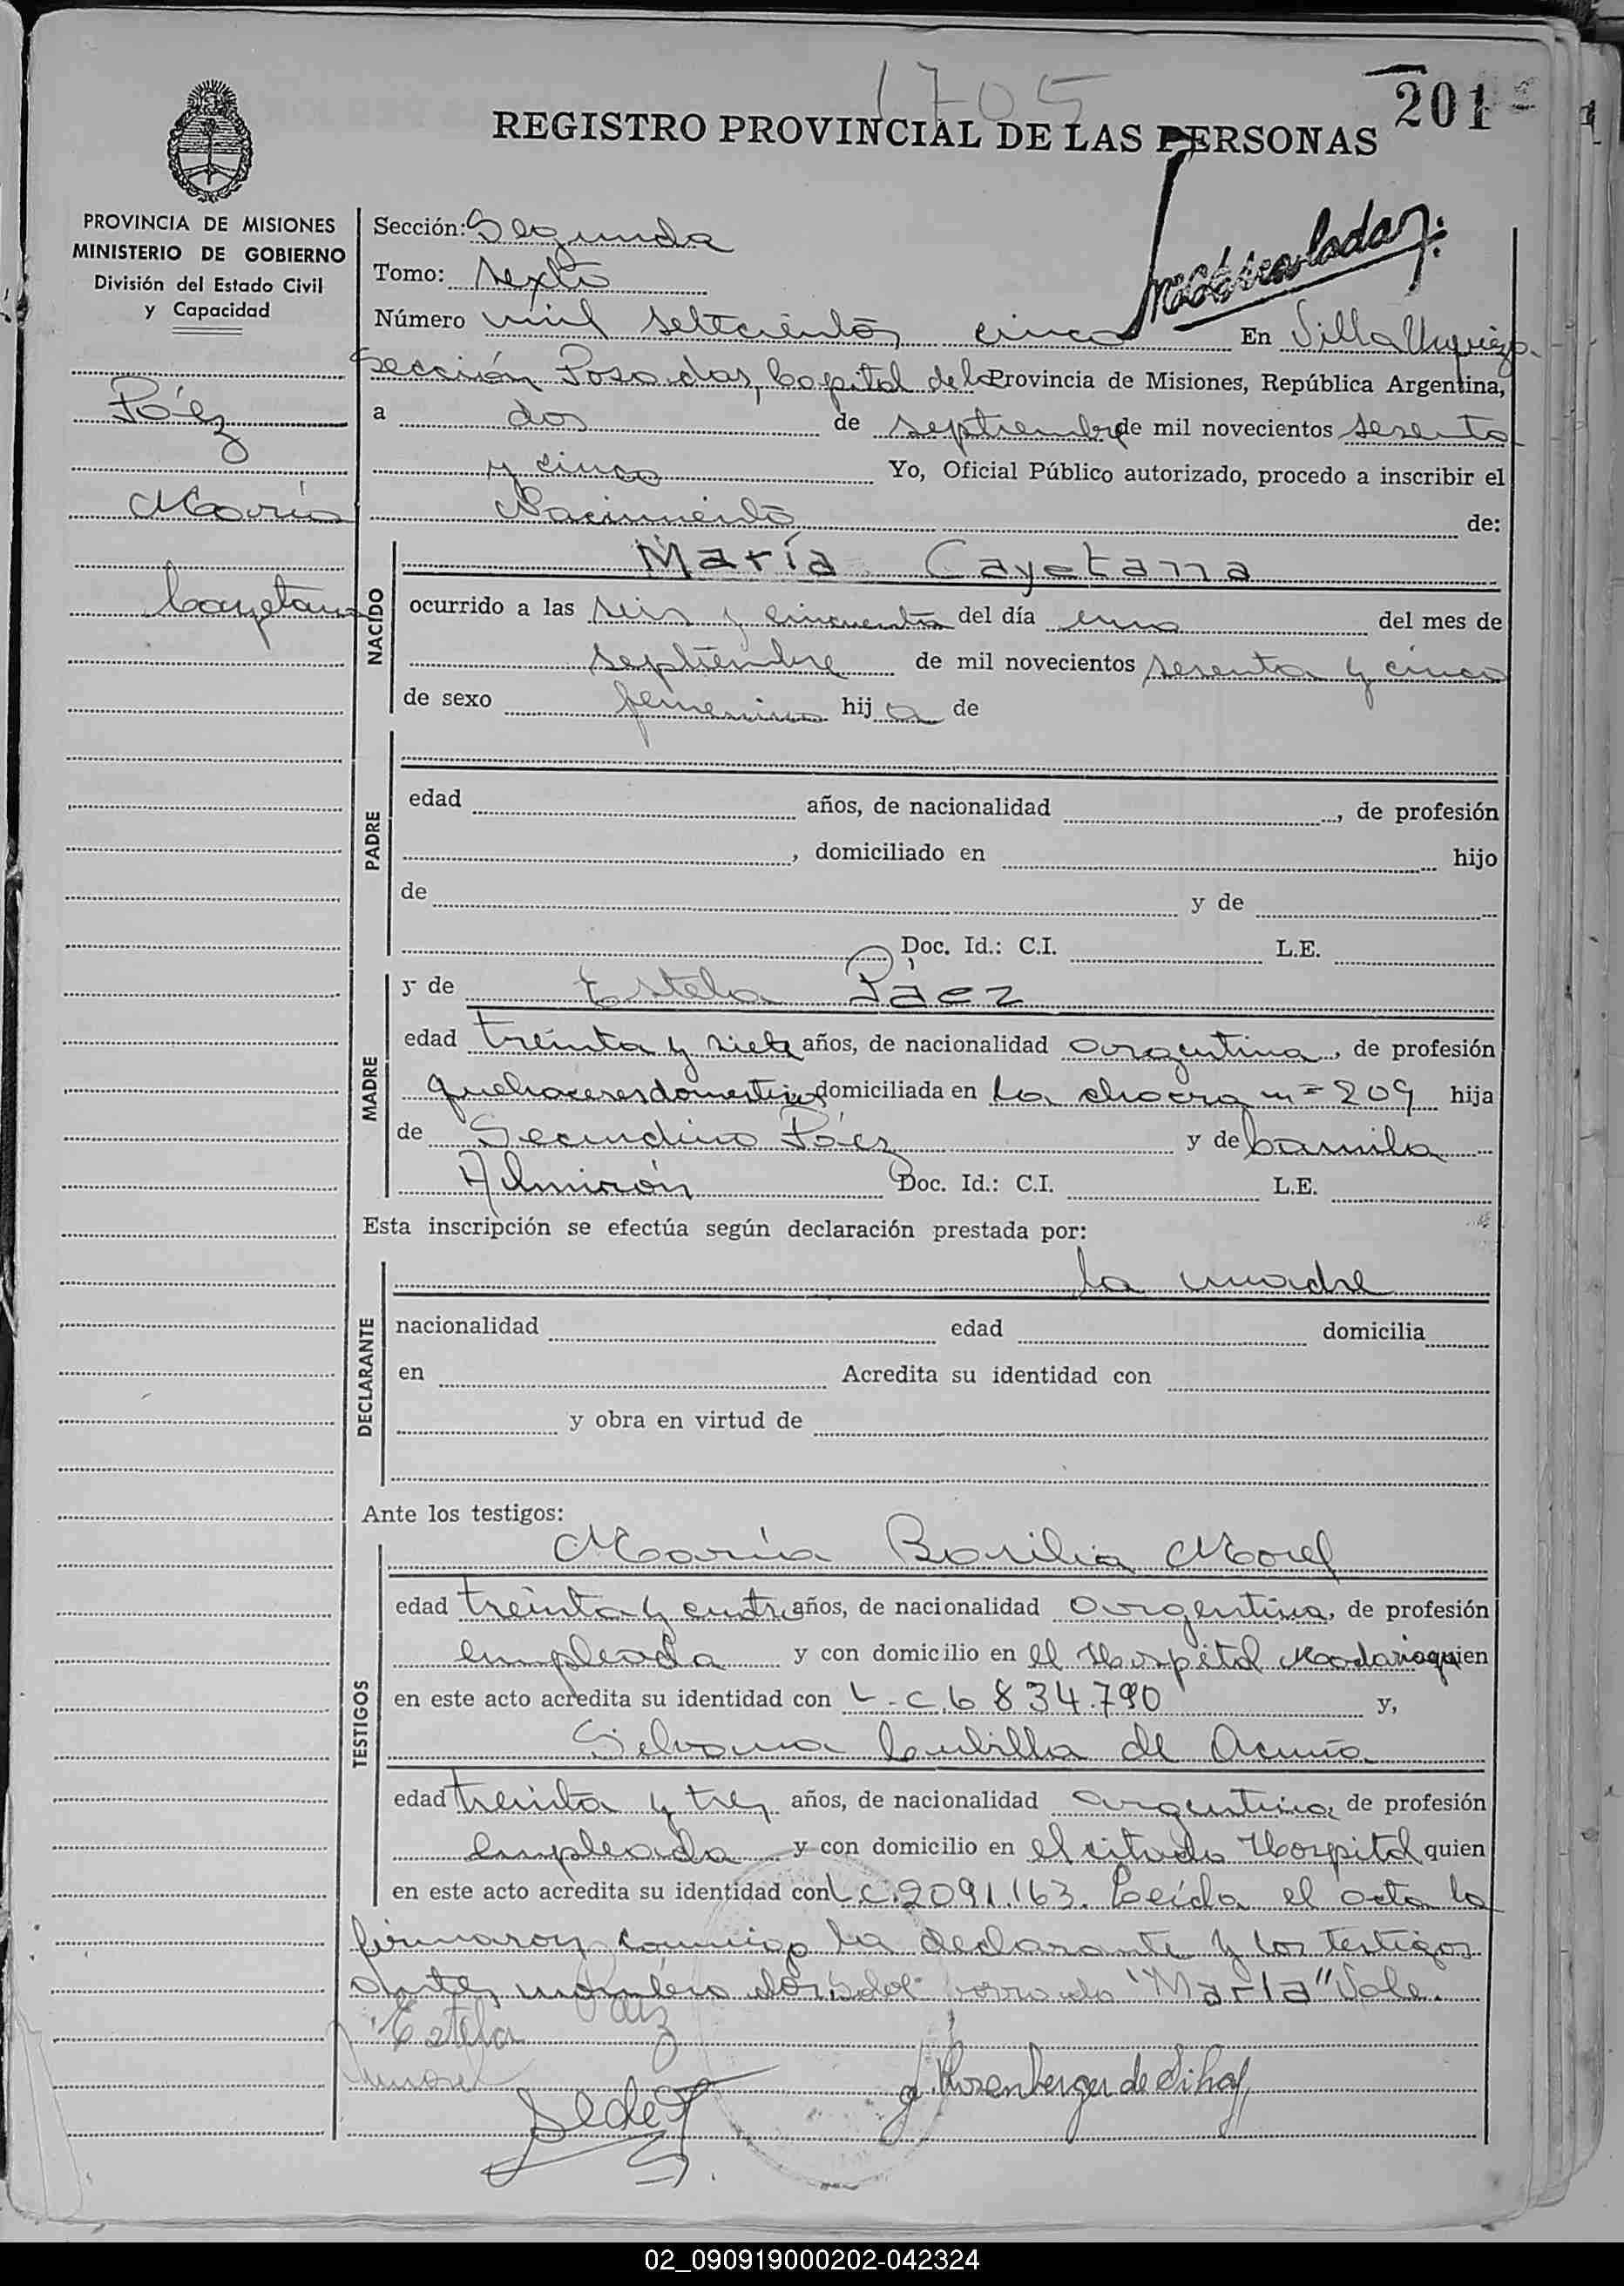 1705
201
REGISTRO PROVINCIAL DE LAS PERSONAS
PROVINCIA DE MISIONES
MINISTERIO DE GOBIERNO
División del Estado Civil
y Capacidad
Páez
María
Cayetana
Sección: Segunda
Tomo: sexto
Número mil setecientos cinco En Villa Urquiza
sección Posadas, Capital de la Provincia de Misiones, República Argentina,
a dos de septiembre de mil novecientos sesenta
y cinco Yo, Oficial Público autorizado, procedo a inscribir el
Nacimiento de:
NACIDO
María Cayetana
ocurrido a las seis y cincuenta del día uno del mes de
septiembre de mil novecientos sesenta y cinco
de sexo femenino hija de
PADRE
edad años, de nacionalidad , de profesión
, domiciliado en hijo
de y de
Doc. Id.: C.I. L.E.
MADRE
y de Estela Páez
edad treinta y siete años, de nacionalidad argentina, de profesión
quehaceres domesticos domiciliada en La chacra nº 209 hija
de Secundino Páez y de Camila
Almirón Doc. Id.: C.I. L.E.
Esta inscripción se efectúa según declaración prestada por:
DECLARANTE
la madre
nacionalidad edad domicilia
en Acredita su identidad con
y obra en virtud de
Ante los testigos:
TESTIGOS
María Basilia Morel
edad treinta y cuatro años, de nacionalidad argentina, de profesión
empleada y con domicilio en el Hospital Madariaga quien
en este acto acredita su identidad con L.C. 6834.790 y,
Silvana Cubilla de Acuña
edad treinta y tres años, de nacionalidad argentina, de profesión
empleada y con domicilio en el citado Hospital quien
en este acto acredita su identidad con L.C. 2091.163. Leída el acta la
firmaron conmigo la declarante y los testigos
antes "María" Vale.
Estela Paez
Morel
G. Rosenberger de
02_090919000202-042324